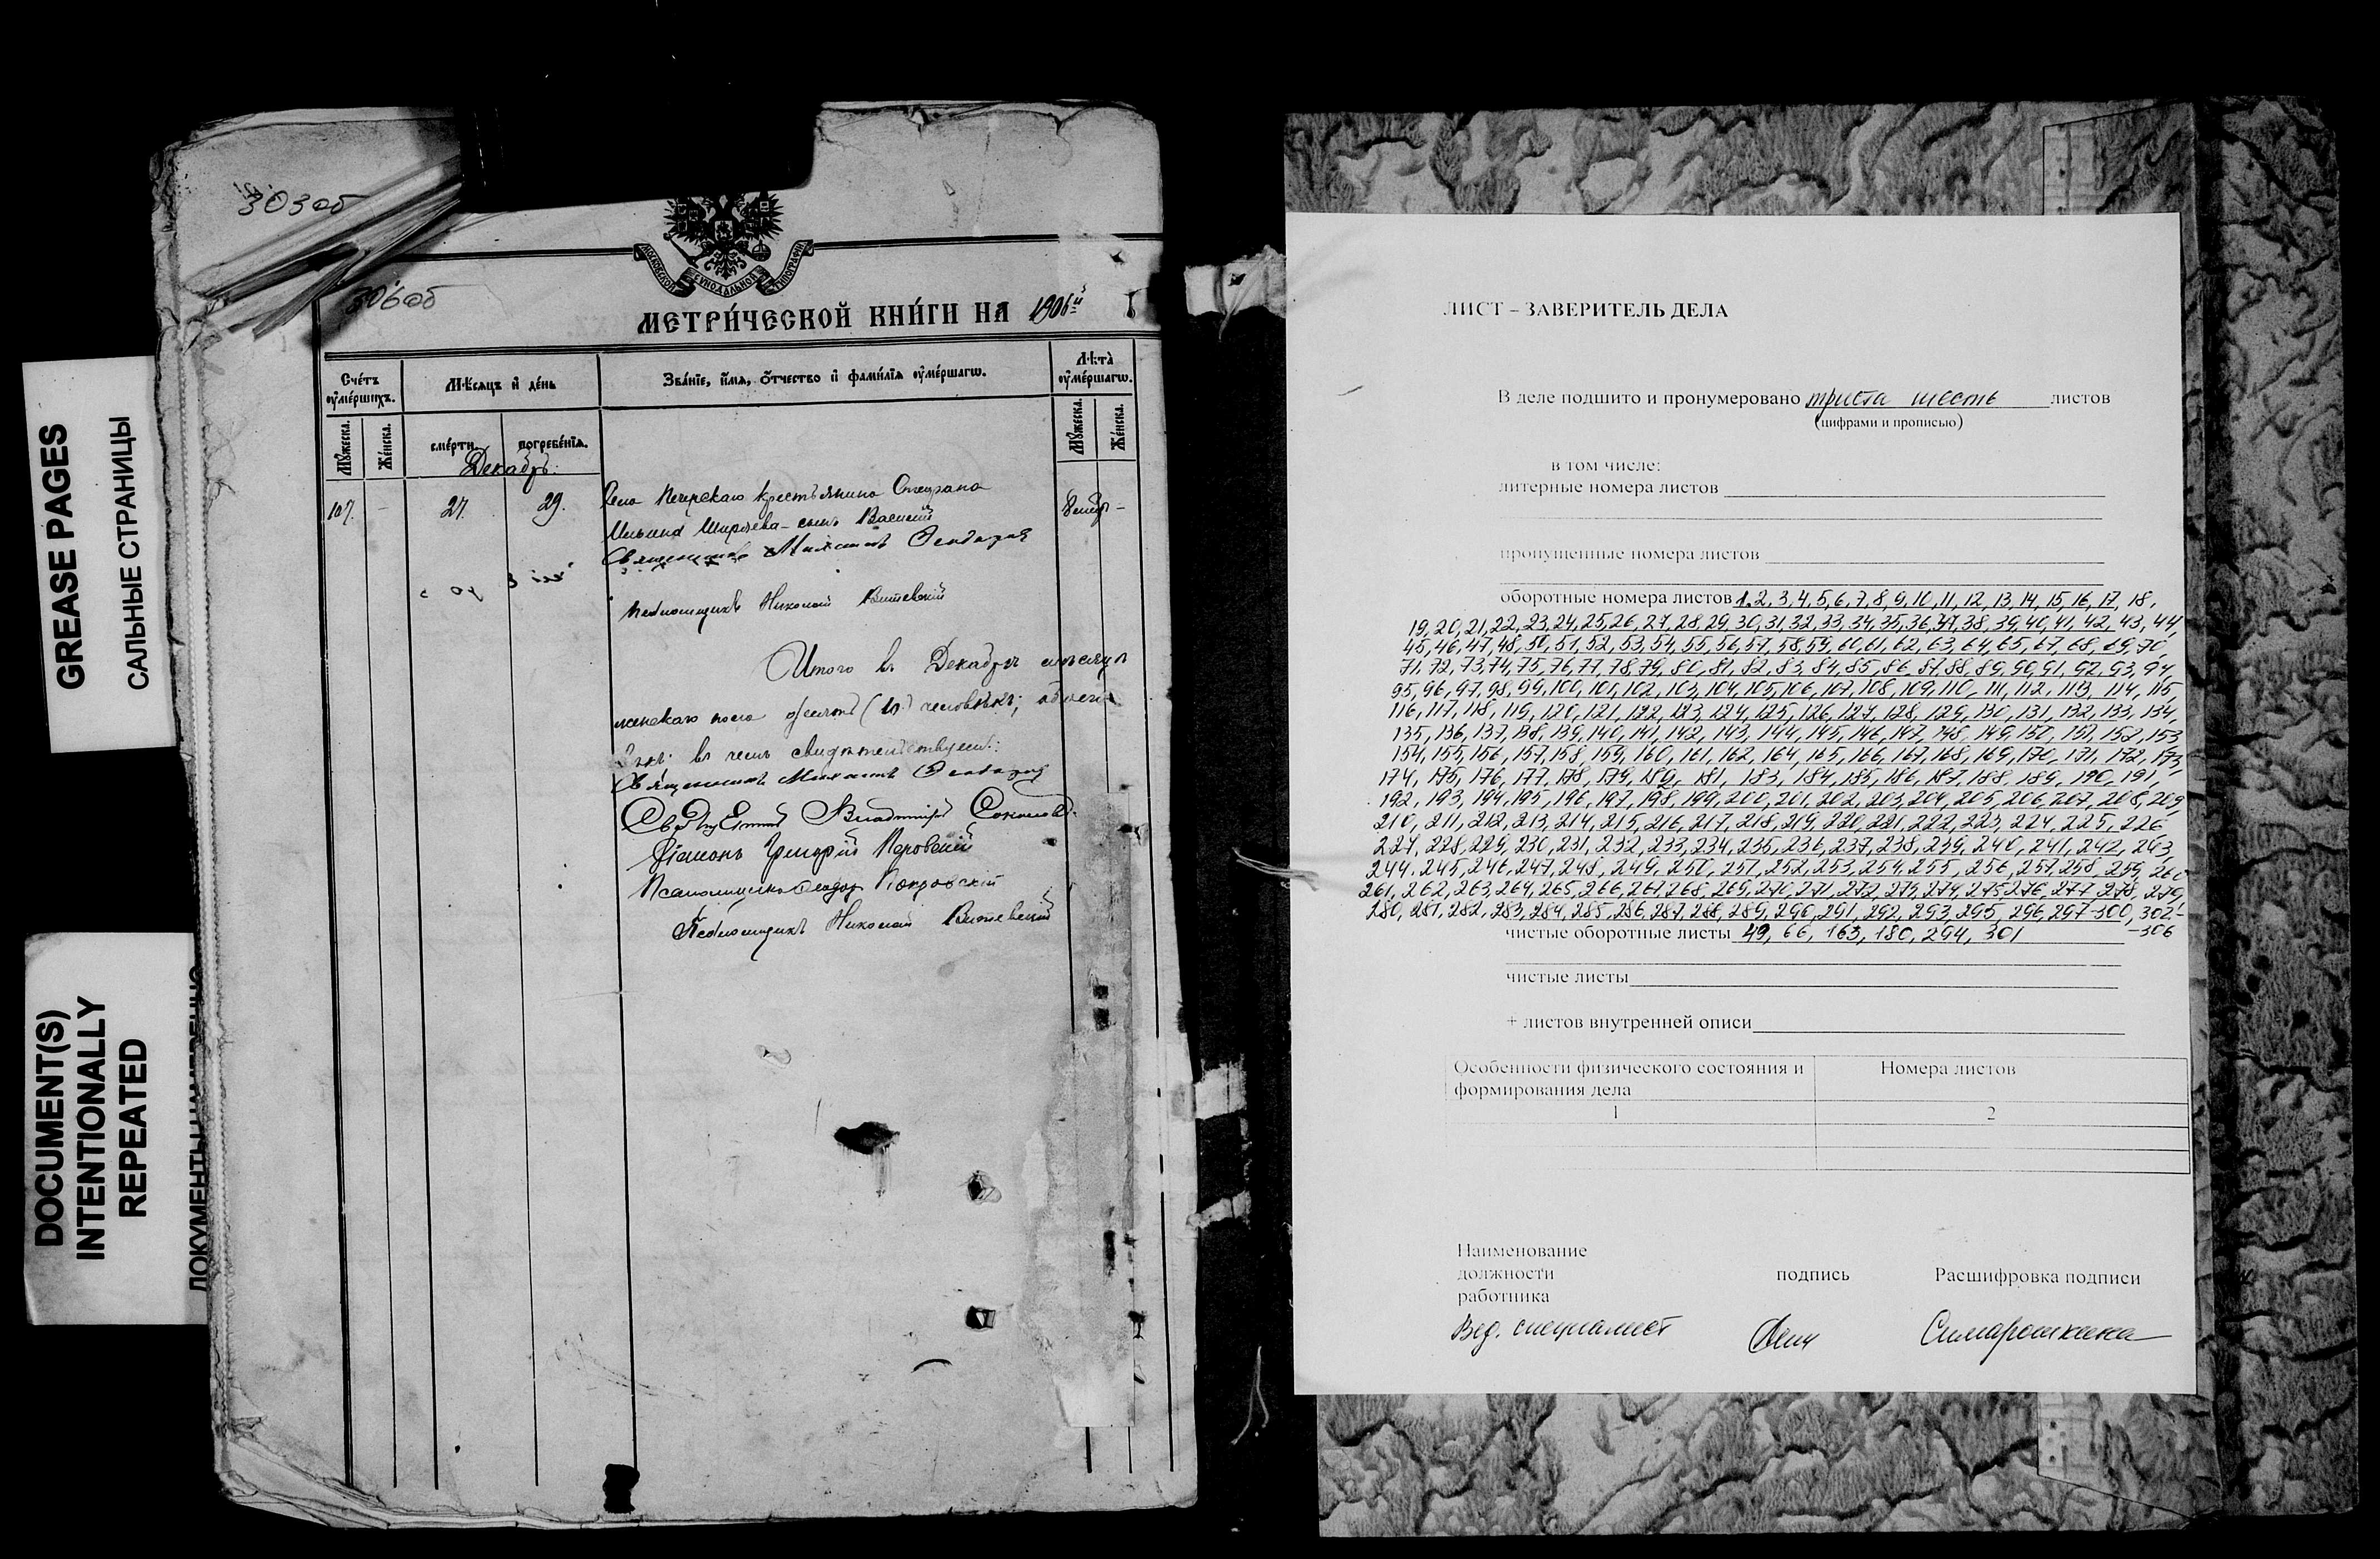 GREASE PAGES
САЛЬНЫЕ СТРАНИЦЫ
DOCUMENT(S)
INTENTIONALLY
REPEATED
303об
306об
МОСКОВСКОЙ СѴНОДАЛЬНОЙ ТИПОГРАФІИ
МЕТРИ́ЧЕСКОЙ КНИ́ГИ НА 1906й
Счётъ ѹ҆ме́ршихъ.
Мѣ́сяцъ и҆ де́нь
Зва́нїе, и҆́мя, ѻ҆́тчество и҆ фами́лїя ѹ҆ме́ршагѡ.
Лѣ́та ѹ҆ме́ршагѡ.
Мꙋ́жеска.
Же́нска.
сме́рти.
погребе́нїѧ.
Мꙋ́жеска.
Же́нска.
Декабрь.
107. - 27. 29. Села Печерскаго крестьянина Стефана
Ильина Ширяева - сынъ Василій
Священникъ Михаилъ
Псаломщикъ Николай Витевскій
Итого въ Декабрѣ мѣсяцѣ
женскаго пола человѣкъ; обоего
въ чемъ свидѣтельствуемъ:
Священникъ Михаилъ
Владиміръ Соколовъ.
Діаконъ Григорій
Псаломщикъ Ѳеодоръ Покровскій
Псаломщикъ Николай Витевскій
ЛИСТ – ЗАВЕРИТЕЛЬ ДЕЛА
В деле подшито и пронумеровано триста шесть листов
(цифрами и прописью)
в том числе:
литерные номера листов
пропущенные номера листов
оборотные номера листов 1,2,3,4,5,6,7,8,9,10,11,12,13,14,15,16,17,18,
19,20,21,22,23,24,25,26,27,28,29,30,31,32,33,34,35,36,37,38,39,40,41,42,43,44,
45,46,47,48,50,51,52,53,54,55,56,57,58,59,60,61,62,63,64,65,67,68,69,70,
71,72,73,74,75,76,77,78,79,80,81,82,83,84,85,86,87,88,89,90,91,92,93,94,
95,96,97,98,99,100,101,102,103,104,105,106,107,108,109,110,111,112,113,114,115,
116,117,118,119,120,121,122,123,124,125,126,127,128,129,130,131,132,133,134,
135,136,137,138,139,140,141,142,143,144,145,146,147,148,149,150,151,152,153,
154,155,156,157,158,159,160,161,162,164,165,166,167,168,169,170,171,172,173,
174,175,176,177,178,179,180,181,183,184,185,186,187,188,189,190,191,
192,193,194,195,196,197,198,199,200,201,202,203,204,205,206,207,208,209,
210,211,212,213,214,215,216,217,218,219,220,221,222,223,224,225,226,
227,228,229,230,231,232,233,234,235,236,237,238,239,240,241,242,243,
244,245,246,247,248,249,250,251,252,253,254,255,256,257,258,259,260
261,262,263,264,265,266,267,268,269,270,271,272,273,274,275,276,277,278,279,
280,281,282,283,284,285,286,287,288,289,290,291,292,293,295,296,297-300,302-
-306
чистые оборотные листы 49, 66, 163, 180, 294, 301
чистые листы
+ листов внутренней описи
Особенности физического состояния и формирования дела
Номера листов
1 2
Наименование
должности
работника
подпись
Расшифровка подписи
Вед. специалист
Симарошкина